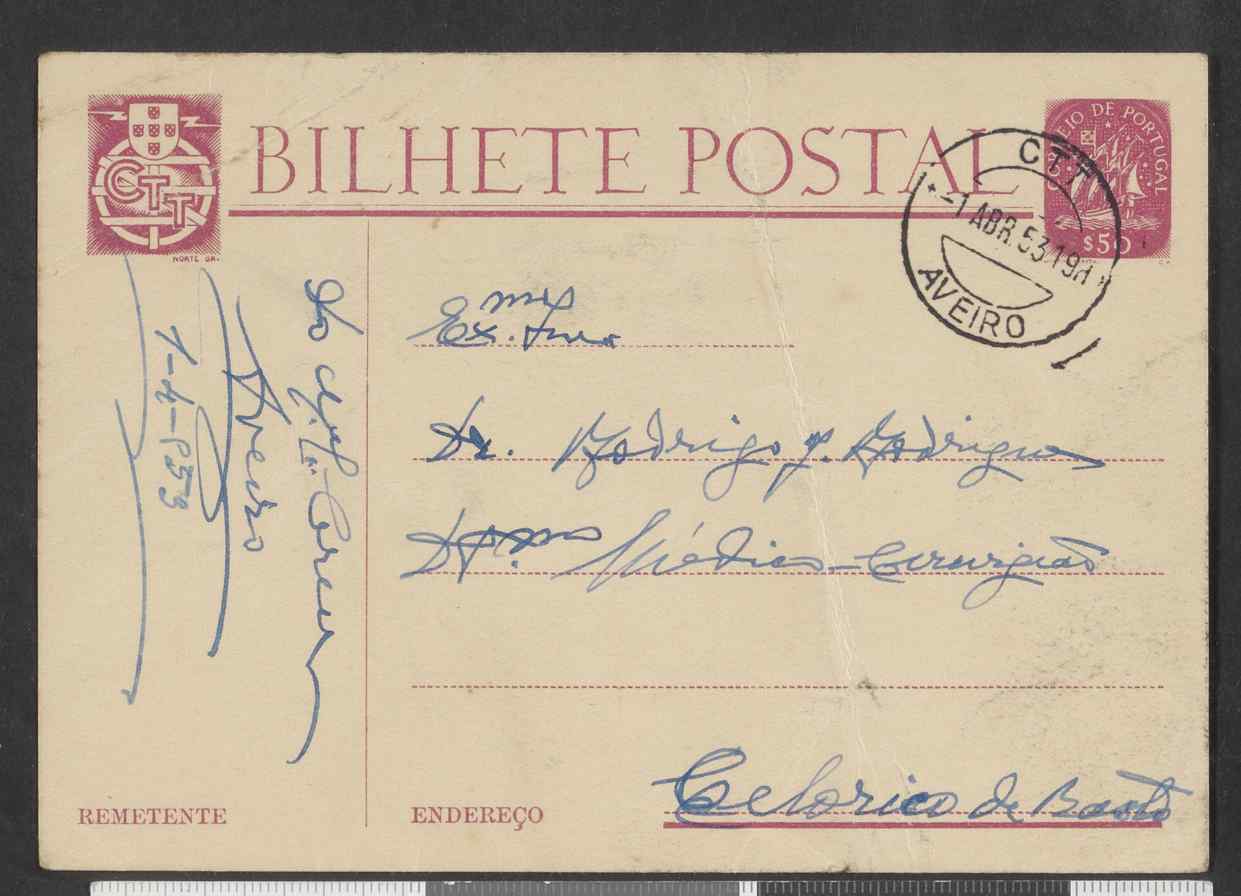 CTT
NORTE GR.
BILHETE POSTAL
CORREIO DE PORTUGAL
$50
CTT
-1 ABR.53.19H
AVEIRO
Do
Aveiro
1-4-953
Ex.mo Snr.
Dr. Rodrigo Rodrigues
Médico-Cirurgião
Celorico de Basto
REMETENTE
ENDEREÇO